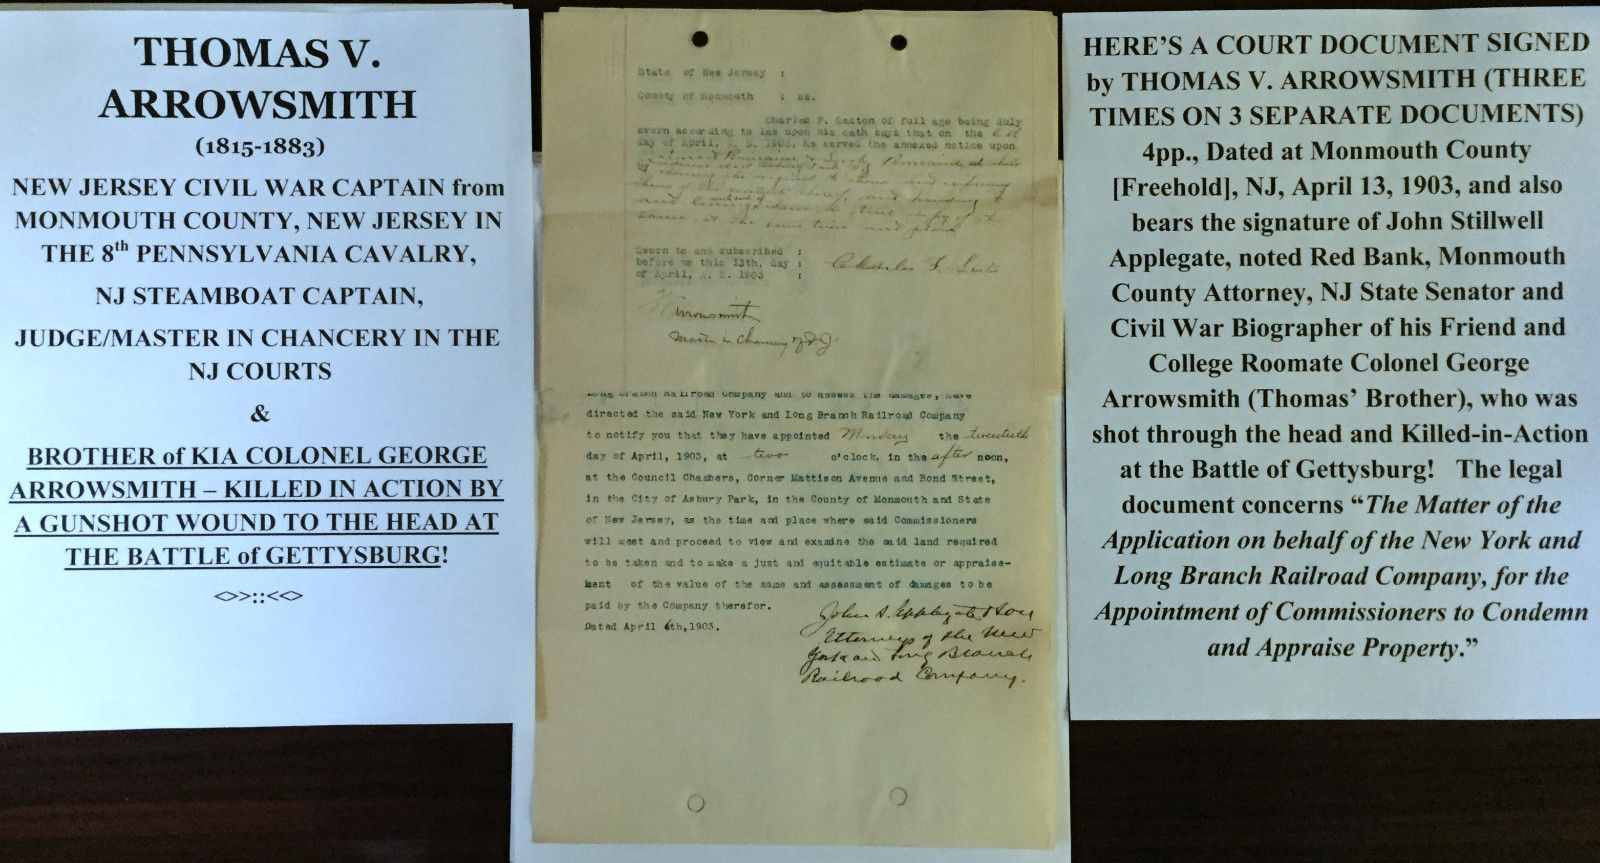 THOMAS V.
ARROWSMITH
(1815-1883)
NEW JERSEY CIVIL WAR CAPTAIN from
MONMOUTH COUNTY, NEW JERSEY IN
THE 8th PENNSYLVANIA CAVALRY,
NJ STEAMBOAT CAPTAIN,
JUDGE/MASTER IN CHANCERY IN THE
NJ COURTS
&
BROTHER of KIA COLONEL GEORGE
ARROWSMITH – KILLED IN ACTION BY
A GUNSHOT WOUND TO THE HEAD AT
THE BATTLE of GETTYSBURG!
<>>::<<>
State of New Jersey :
County of Monmouth : ss.
Charles F. Sexton of full age being duly
sworn according to law upon his oath says that on the
day of April, A. D. 1903, he served the annexed notice upon
by
same at the same time and place
Sworn to and subscribed :
before me this 13th, day :
of April, A. D. 1903 :
Charles F.
Arrowsmith
Master in Chancery of N J
Long Branch Railroad Company and to assess the damages, have
directed the said New York and Long Branch Railroad Company
to notify you that they have appointed Monday the twentieth
day of April, 1903, at two o'clock, in the after noon,
at the Council Chambers, Corner Mattison Avenue and Bond Street,
in the City of Asbury Park, in the County of Monmouth and State
of New Jersey, as the time and place where said Commissioners
will meet and proceed to view and examine the said land required
to be taken and to make a just and equitable estimate or appraise-
ment of the value of the same and assessment of damages to be
paid by the Company therefor.
Dated April 6th, 1903.
John S. Applegate & Son
Attorneys of the New
York and Long Branch
Railroad Company.
HERE'S A COURT DOCUMENT SIGNED
by THOMAS V. ARROWSMITH (THREE
TIMES ON 3 SEPARATE DOCUMENTS)
4pp., Dated at Monmouth County
[Freehold], NJ, April 13, 1903, and also
bears the signature of John Stillwell
Applegate, noted Red Bank, Monmouth
County Attorney, NJ State Senator and
Civil War Biographer of his Friend and
College Roomate Colonel George
Arrowsmith (Thomas' Brother), who was
shot through the head and Killed-in-Action
at the Battle of Gettysburg! The legal
document concerns “The Matter of the
Application on behalf of the New York and
Long Branch Railroad Company, for the
Appointment of Commissioners to Condemn
and Appraise Property.”